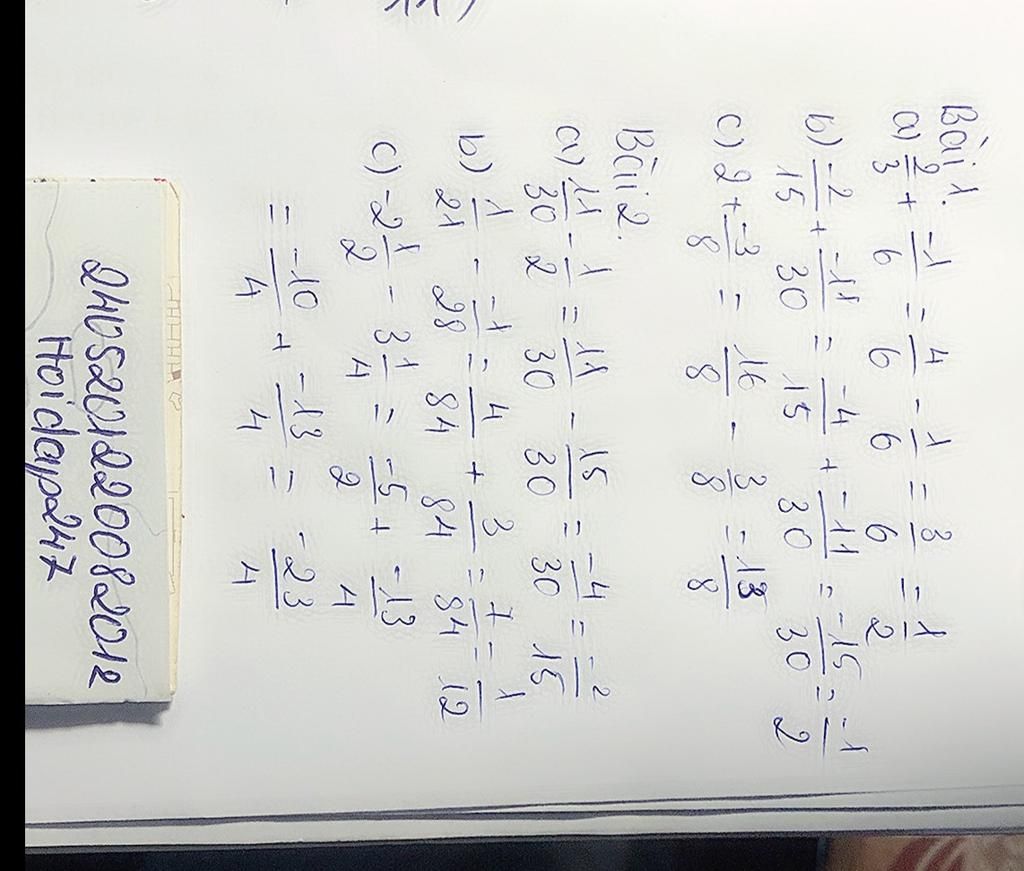 Bài 1.
a) 2/3 + -1/6 = 4/6 - 1/6 = 3/6 = 1/2
b) -2/15 + -11/30 = -4/15 + -11/30 = -15/30 = -1/2
c) 2 + -3/8 = 16/8 - 3/8 = 13/8
Bài 2.
a) 11/30 - 1/2 = 11/30 - 15/30 = -4/30 = -2/15
b) 1/21 - -1/28 = 4/84 + 3/84 = 7/84 = 1/12
c) -2 1/2 - 3 1/4 = -5/2 + -13/4
= -10/4 + -13/4 = -23/4
2405201220082012
Hoidap247